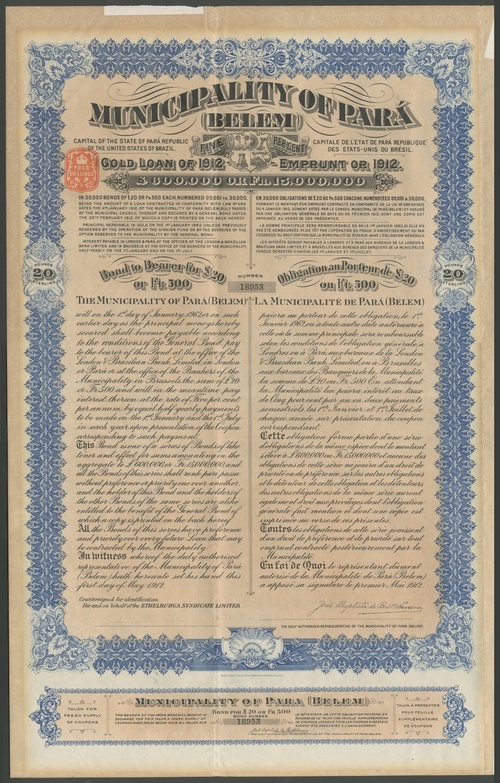 MUNICIPALITY OF PARÁ
(BELEM)
CAPITAL OF THE STATE OF PARÁ REPUBLIC
OF THE UNITED STATES OF BRAZIL.
CAPITALE DE L'ETAT DE PARÁ REPUBLIQUE
DES ETATS-UNIS DU BRÉSIL.
FIVE PERCENT
5%
GOLD LOAN OF 1912. EMPRUNT OR 1912.
£600000 OR FR. 15,000,000
IN 30,000 BONDS OF £20 OR FR 500 EACH, NUMBERED 00,001 TO 30,000,
EN 30,000 OBLIGATIONS DE £20 OU FR 500 CHACUNE NUMÉROTÉES 00,001 À 30,000,
POUNDS
20
STERLING
POUNDS
20
STERLING
Bond to Bearer for £20
or Fr. 500
NUMBER
18953
Obligation au Porteur de £20
ou Fr. 500
THE MUNICIPALITY OF PARÁ (BELEM)
will on the 1st day of January, 1962, or on such
earlier day as the principal moneys hereby
secured shall become payable according
to the conditions of the General Bond, pay
to the bearer of this Bond at the office of the
London & Brazilian Bank, Limited, in London
or Pará or at the office of the Bankers of the
Municipality in Brussels the sum of £20
or Fr. 500 and will in the meantime pay
interest thereon at the rate of Five per cent
per annum, by equal half-yearly payments
to be made on the 1st January and the 1st July
in each year upon presentation of the Coupon
corresponding to such payment.
This Bond is one of a series of Bonds of like
tenor and effect for sums amounting in the
aggregate to £600,000 or Fr. 15,000,000 and
all the Bonds of this series shall rank pari passu
without preference or priority one over another
and the holder of this Bond and the holders of
the other Bonds of the same series are alike
entitled to the benefit of the General Bond of
which a copy is printed on the back hereof.
All the Bonds of this series have preference
and priority over every future Loan that may
be contracted by the Municipality.
In witness whereof the duly authorised
representative of the Municipality of Pará
(Belem) hath hereunto set his hand this
first day of May 1912.
Countersigned for identification
For and on behalf of the ETHELBURGA SYNDICATE LIMITED.
LA MUNICIPALITÉ DE PARÁ (BELEM)
paiera au porteur de cette obligation, le 1er
Janvier 1962, ou à toute autre date antérieure à
celle où la somme principale sera remboursable
selon les conditions de l'obligation générale, à
Londres ou à Pará, aux bureaux de la London
& Brazilian Bank, Limited ou à Bruxelles
aux bureaux des Banquiers de la Municipalité
la somme de £20 ou Fr. 500. En attendant,
la Municipalité devra paier intérêt au taux
de Cinq pour cent par an en deux paiements
semestriels, les 1er Janvier et 1er Juillet de
chaque année sur présentation du coupon
correspondant.
Cette obligation forme partie d'une série
d'obligations de la même espèce dont le montant
s'élève à £600,000 ou Fr. 15,000,000 et aucune
des obligations de cette série ne jouira d'un droit de
priorité ou de préférence sur les autres obligations
et le détenteur de cette obligation et les détenteurs
des autres obligations de la même série auront
également droit aux privilèges dont l'obligation
générale fait mention et dont une copie est
imprimée au verso de ces présentes.
Toutes les obligations de cette série jouissent
d'un droit de préférence et de priorité sur tout
emprunt contracté postérieurement par la
Municipalité.
En foi de Quoi, le représentant dûment
autorisé de la Municipalité de Pará (Belem)
a apposé sa signature le premier Mai 1912.
THE DULY AUTHORISED REPRESENTATIVE OF THE MUNICIPALITY OF PARÁ (BELEM)
TALON FOR
FRESH SUPPLY
OF COUPONS
MUNICIPALITY OF PARA (BELEM)
BOND FOR £20 OR FR 500
BOND NUMBER
18953
TALON A PRESENTER
POUR FEUILLE
SUPPLÉMENTAIRE
DE COUPONS